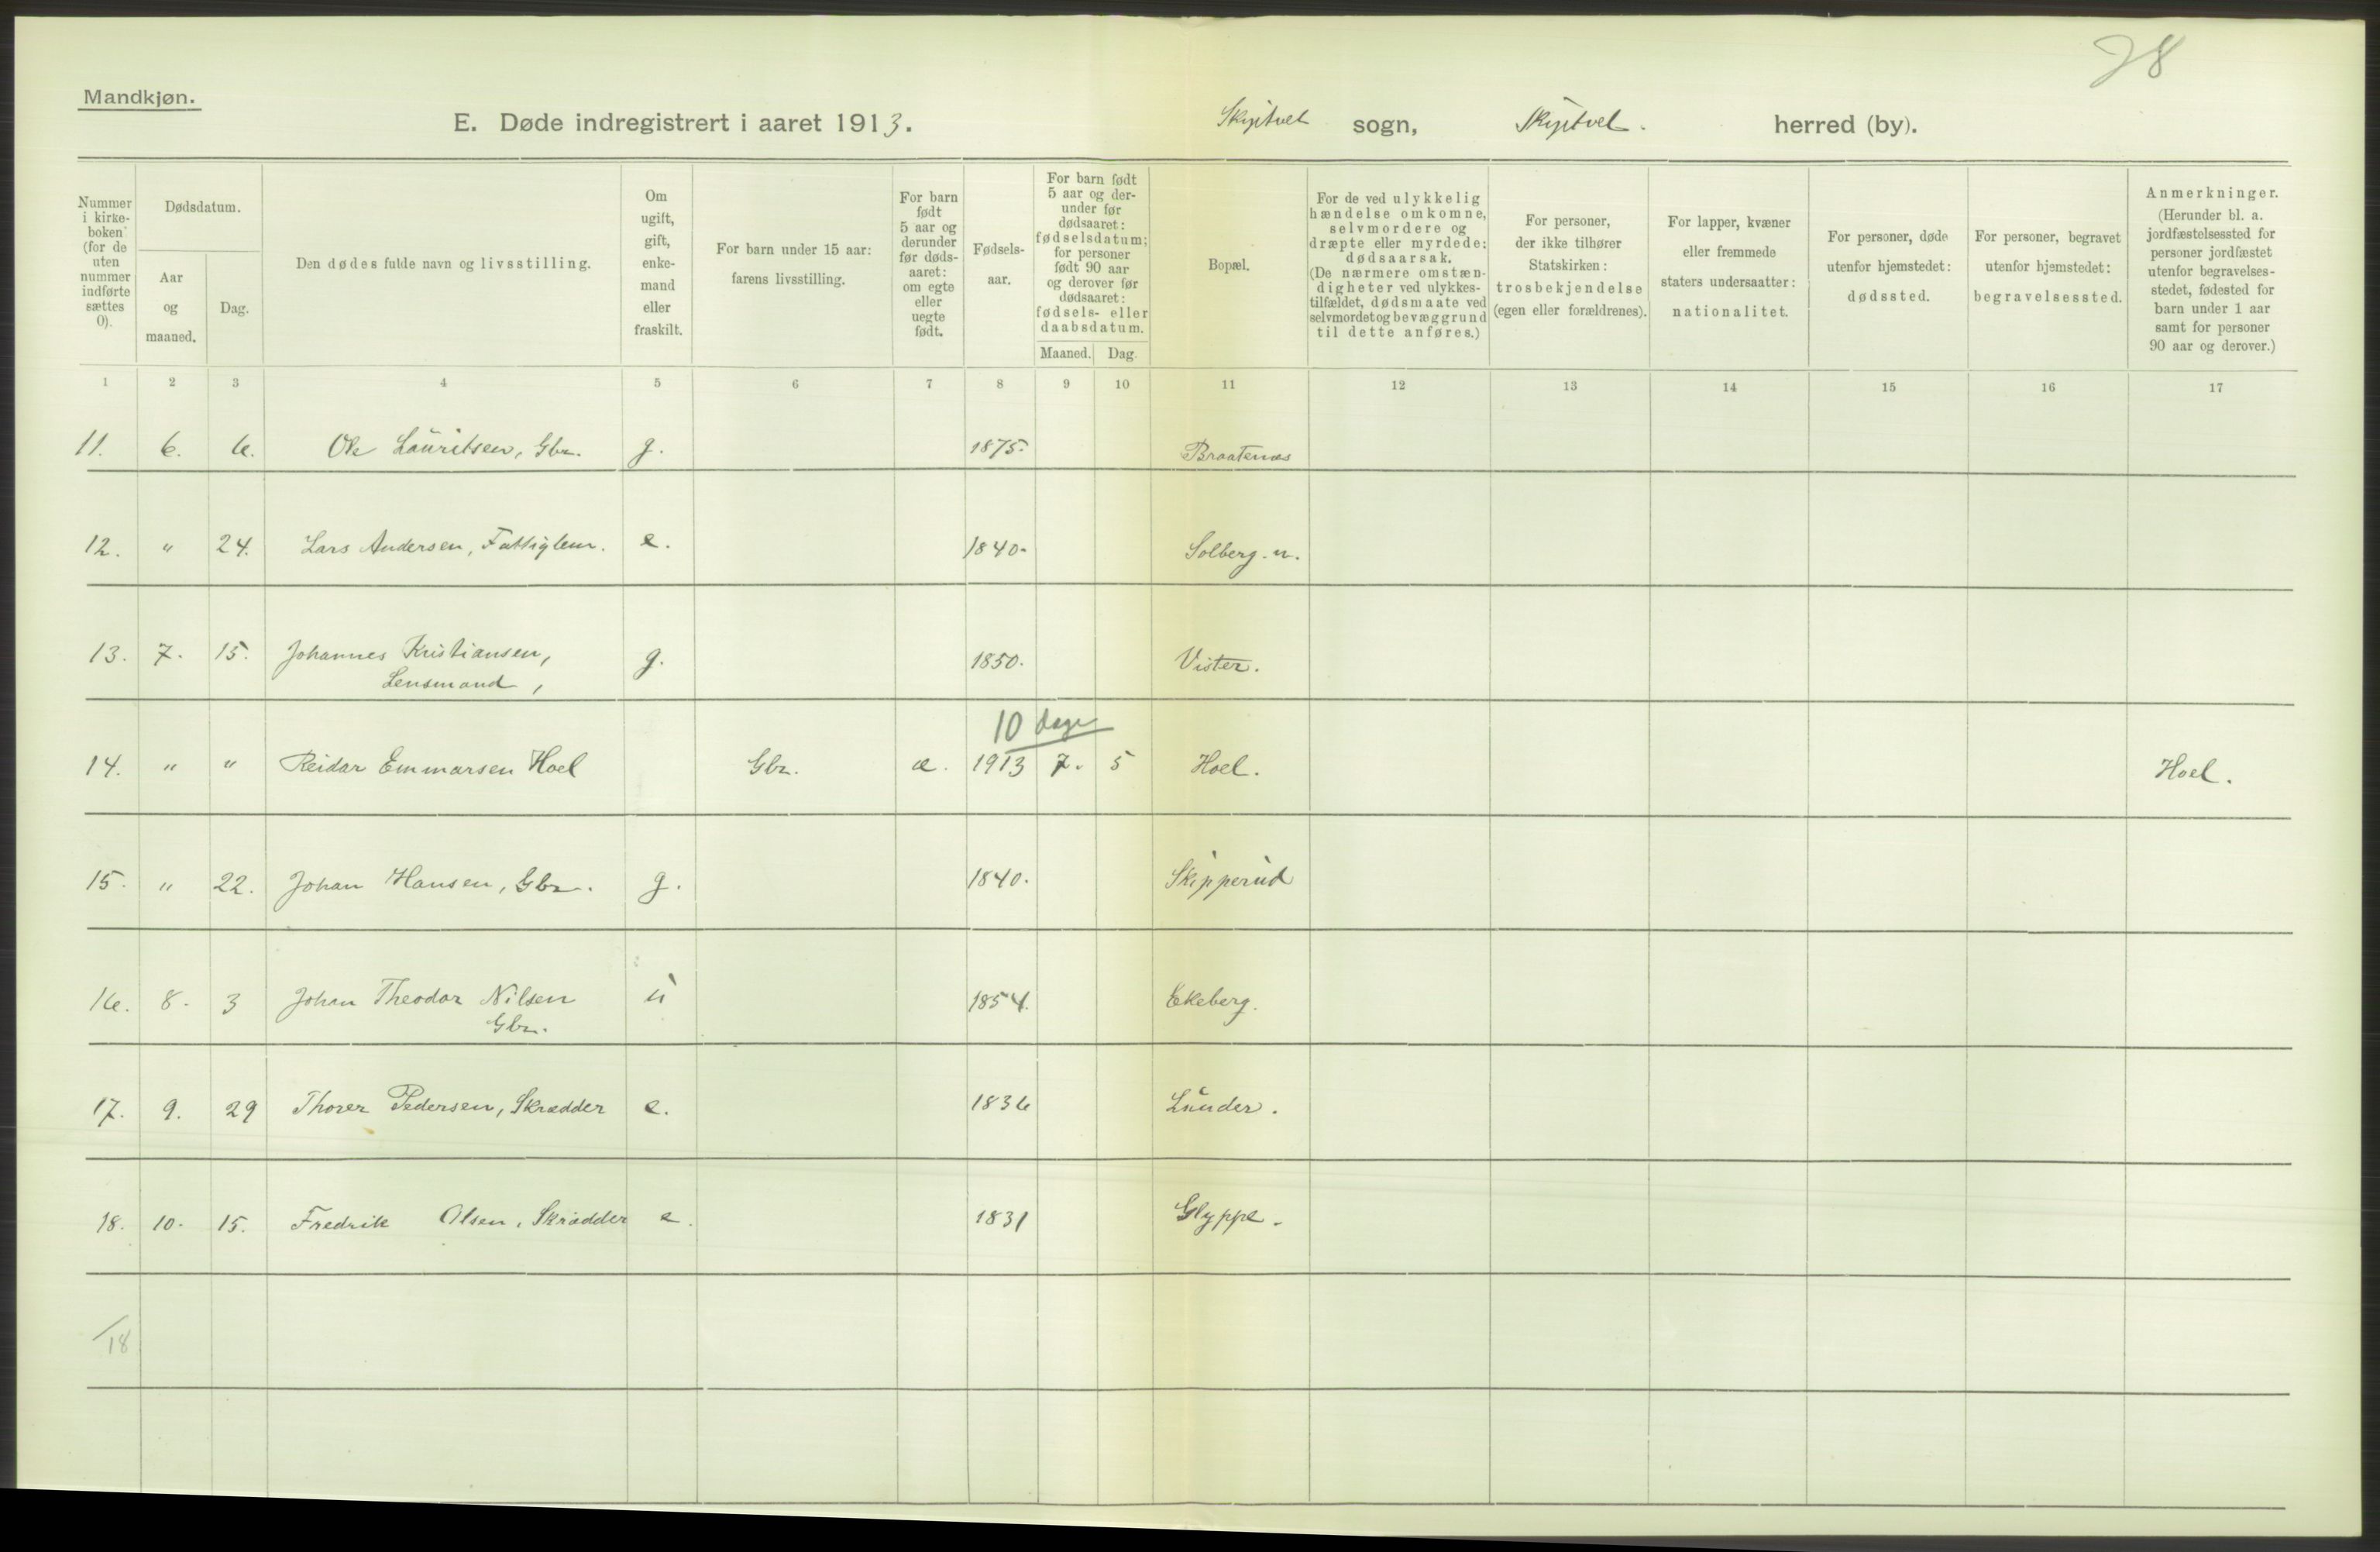 28
Mandkjøn.
E. Døde indregistrert i aaret 1913. Skjptvet sogn, Skjptvet. herred (by).
Nummer i kirke- boken (for de uten nummer indførte sættes 0).
Dødsdatum.
Aar og maaned.
Dag.
Den dødes fulde navn og livsstilling.
Om ugift, gift, enke- mand eller fraskilt.
For barn under 15 aar: farens livsstilling.
For barn født 5 aar og derunder før døds- aaret: om egte eller uegte født.
Fødsels- aar.
For barn født 5 aar og der- under før dødsaaret: fødselsdatum; for personer født 90 aar og derover før dødsaaret: fødsels- eller daabsdatum.
Maaned. Dag.
Bopæl.
For de ved ulykkelig hændelse omkomne, selvmordere og dræpte eller myrdede: dødsaarsak. (De nærmere omstæn- digheter ved ulykkes- tilfældet, dødsmaate ved selvmordet og bevæggrund til dette anføres.)
For personer, der ikke tilhører Statskirken: trosbekjendelse (egen eller forældrenes).
For lapper, kvæner eller fremmede staters undersaatter: nationalitet.
For personer, døde utenfor hjemstedet: dødssted.
For personer, begravet utenfor hjemstedet: begravelsessted.
Anmerkninger. (Herunder bl. a. jordfæstelsessted for personer jordfæstet utenfor begravelses- stedet, fødested for barn under 1 aar samt for personer 90 aar og derover.)
1 2 3 4 5 6 7 8 9 10 11 12 13 14 15 16 17
11. 6. 6. Ole Lauritsen, Gbr. g. 1875. Braatenes
12. " 24. Lars Andersen, Fattiglem. e. 1840. Solberg. n.
13. 7. 15. Johannes Kristiansen, g. 1850. Vister.
Lensmand,
10 dage
14. " " Reidar Emmarsen Hoel Gbr. æ. 1913 7. 5 Hoel. Hoel.
15. " 22. Johan Hansen, Gbr. g. 1840. Skipperud
16. 8. 3 Johan Theodor Nilsen u 1854. Ekeberg.
Gbr.
17. 9. 29 Thorer Pedersen, Skrædder e. 1836 Lunder.
18. 10. 15. Fredrik Olsen, Skrædder e. 1831 Glyppe.
/18